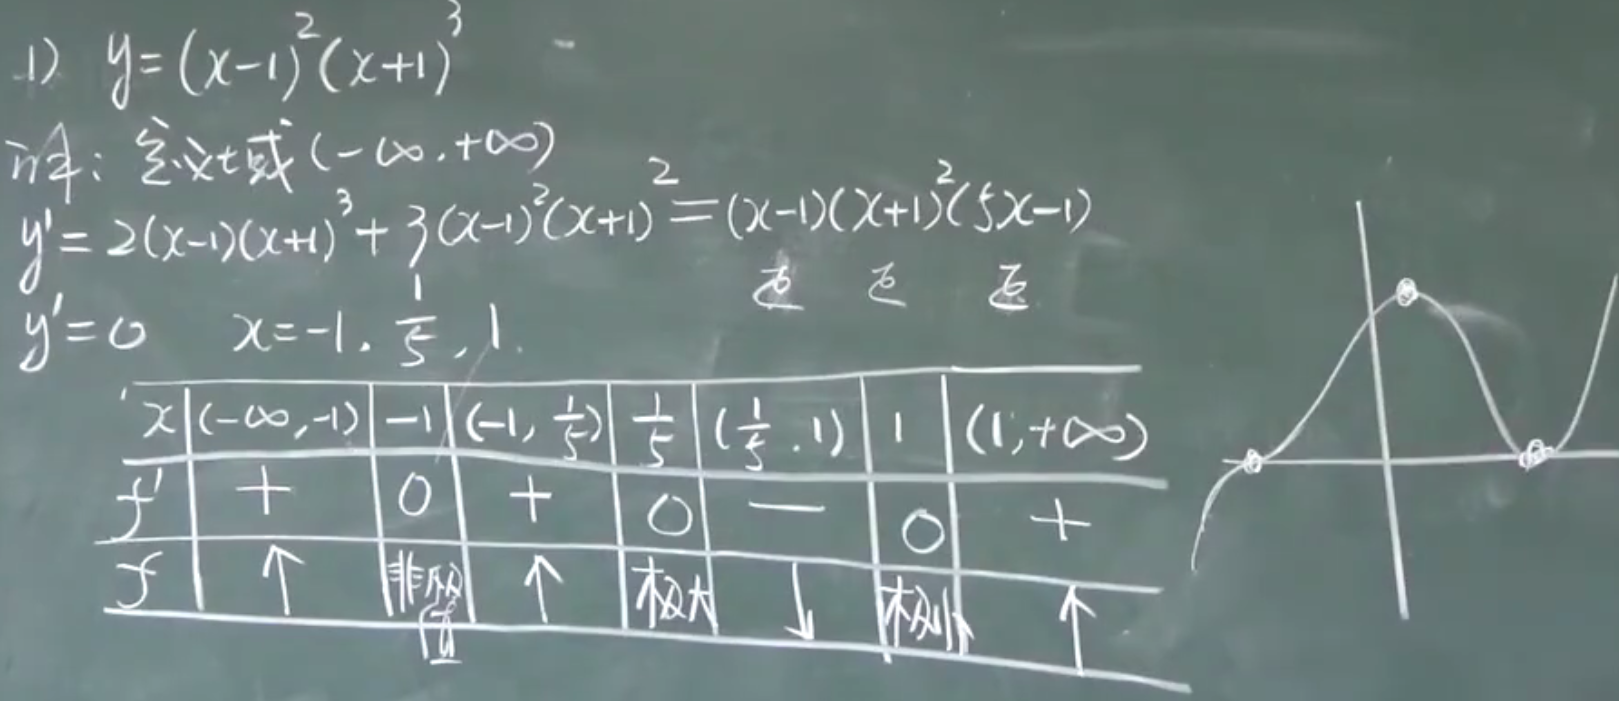 1) y=(x-1)²(x+1)³
解: 定义域(-∞,+∞)
y'=2(x-1)(x+1)³+3(x-1)²(x+1)²=(x-1)(x+1)²(5x-1)
正 正 正
y'=0 x=-1, 1/5, 1.
x (-∞,-1) -1 (-1, 1/5) 1/5 (1/5, 1) 1 (1,+∞)
f' + 0 + 0 — 0 +
f ↑ 非极值 ↑ 极大 ↓ 极小 ↑